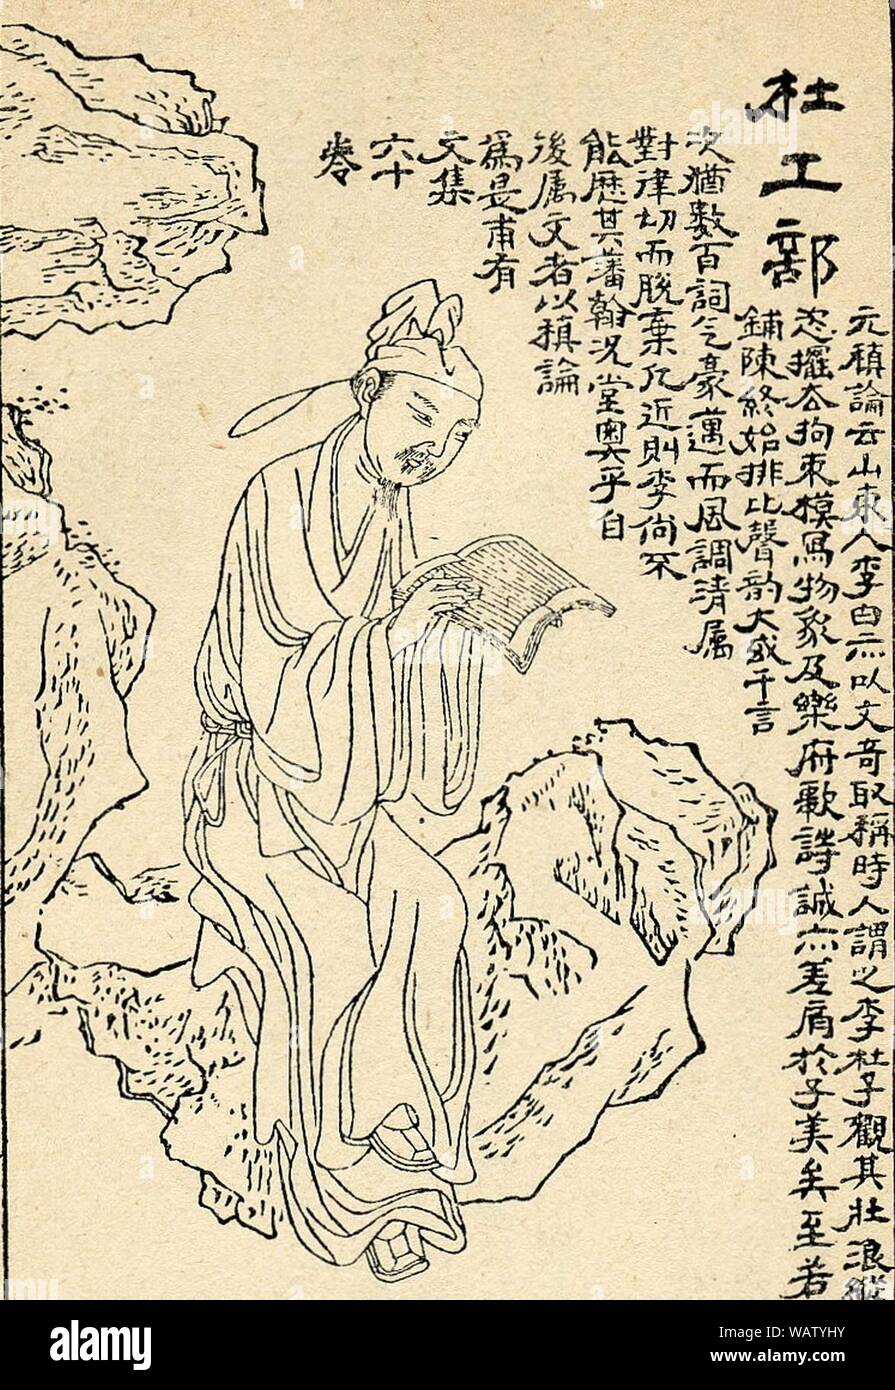 杜工部
元稹論云山東人李白亦以文奇取稱時人謂之李杜子觀其壯浪縱
恣擺去拘束模寫物象及樂府歌詩誠亦差肩於子美矣至若
鋪陳終始排比聲韵大或千言
次猶數百詞气豪邁而風調清属
對律切而脱棄凡近則李尚不
能歷其藩翰况堂奧乎自
後属文者以稹論
爲是甫有
文集
六十
卷
alamy
alamy
Image ID: WATYHY
www.alamy.com